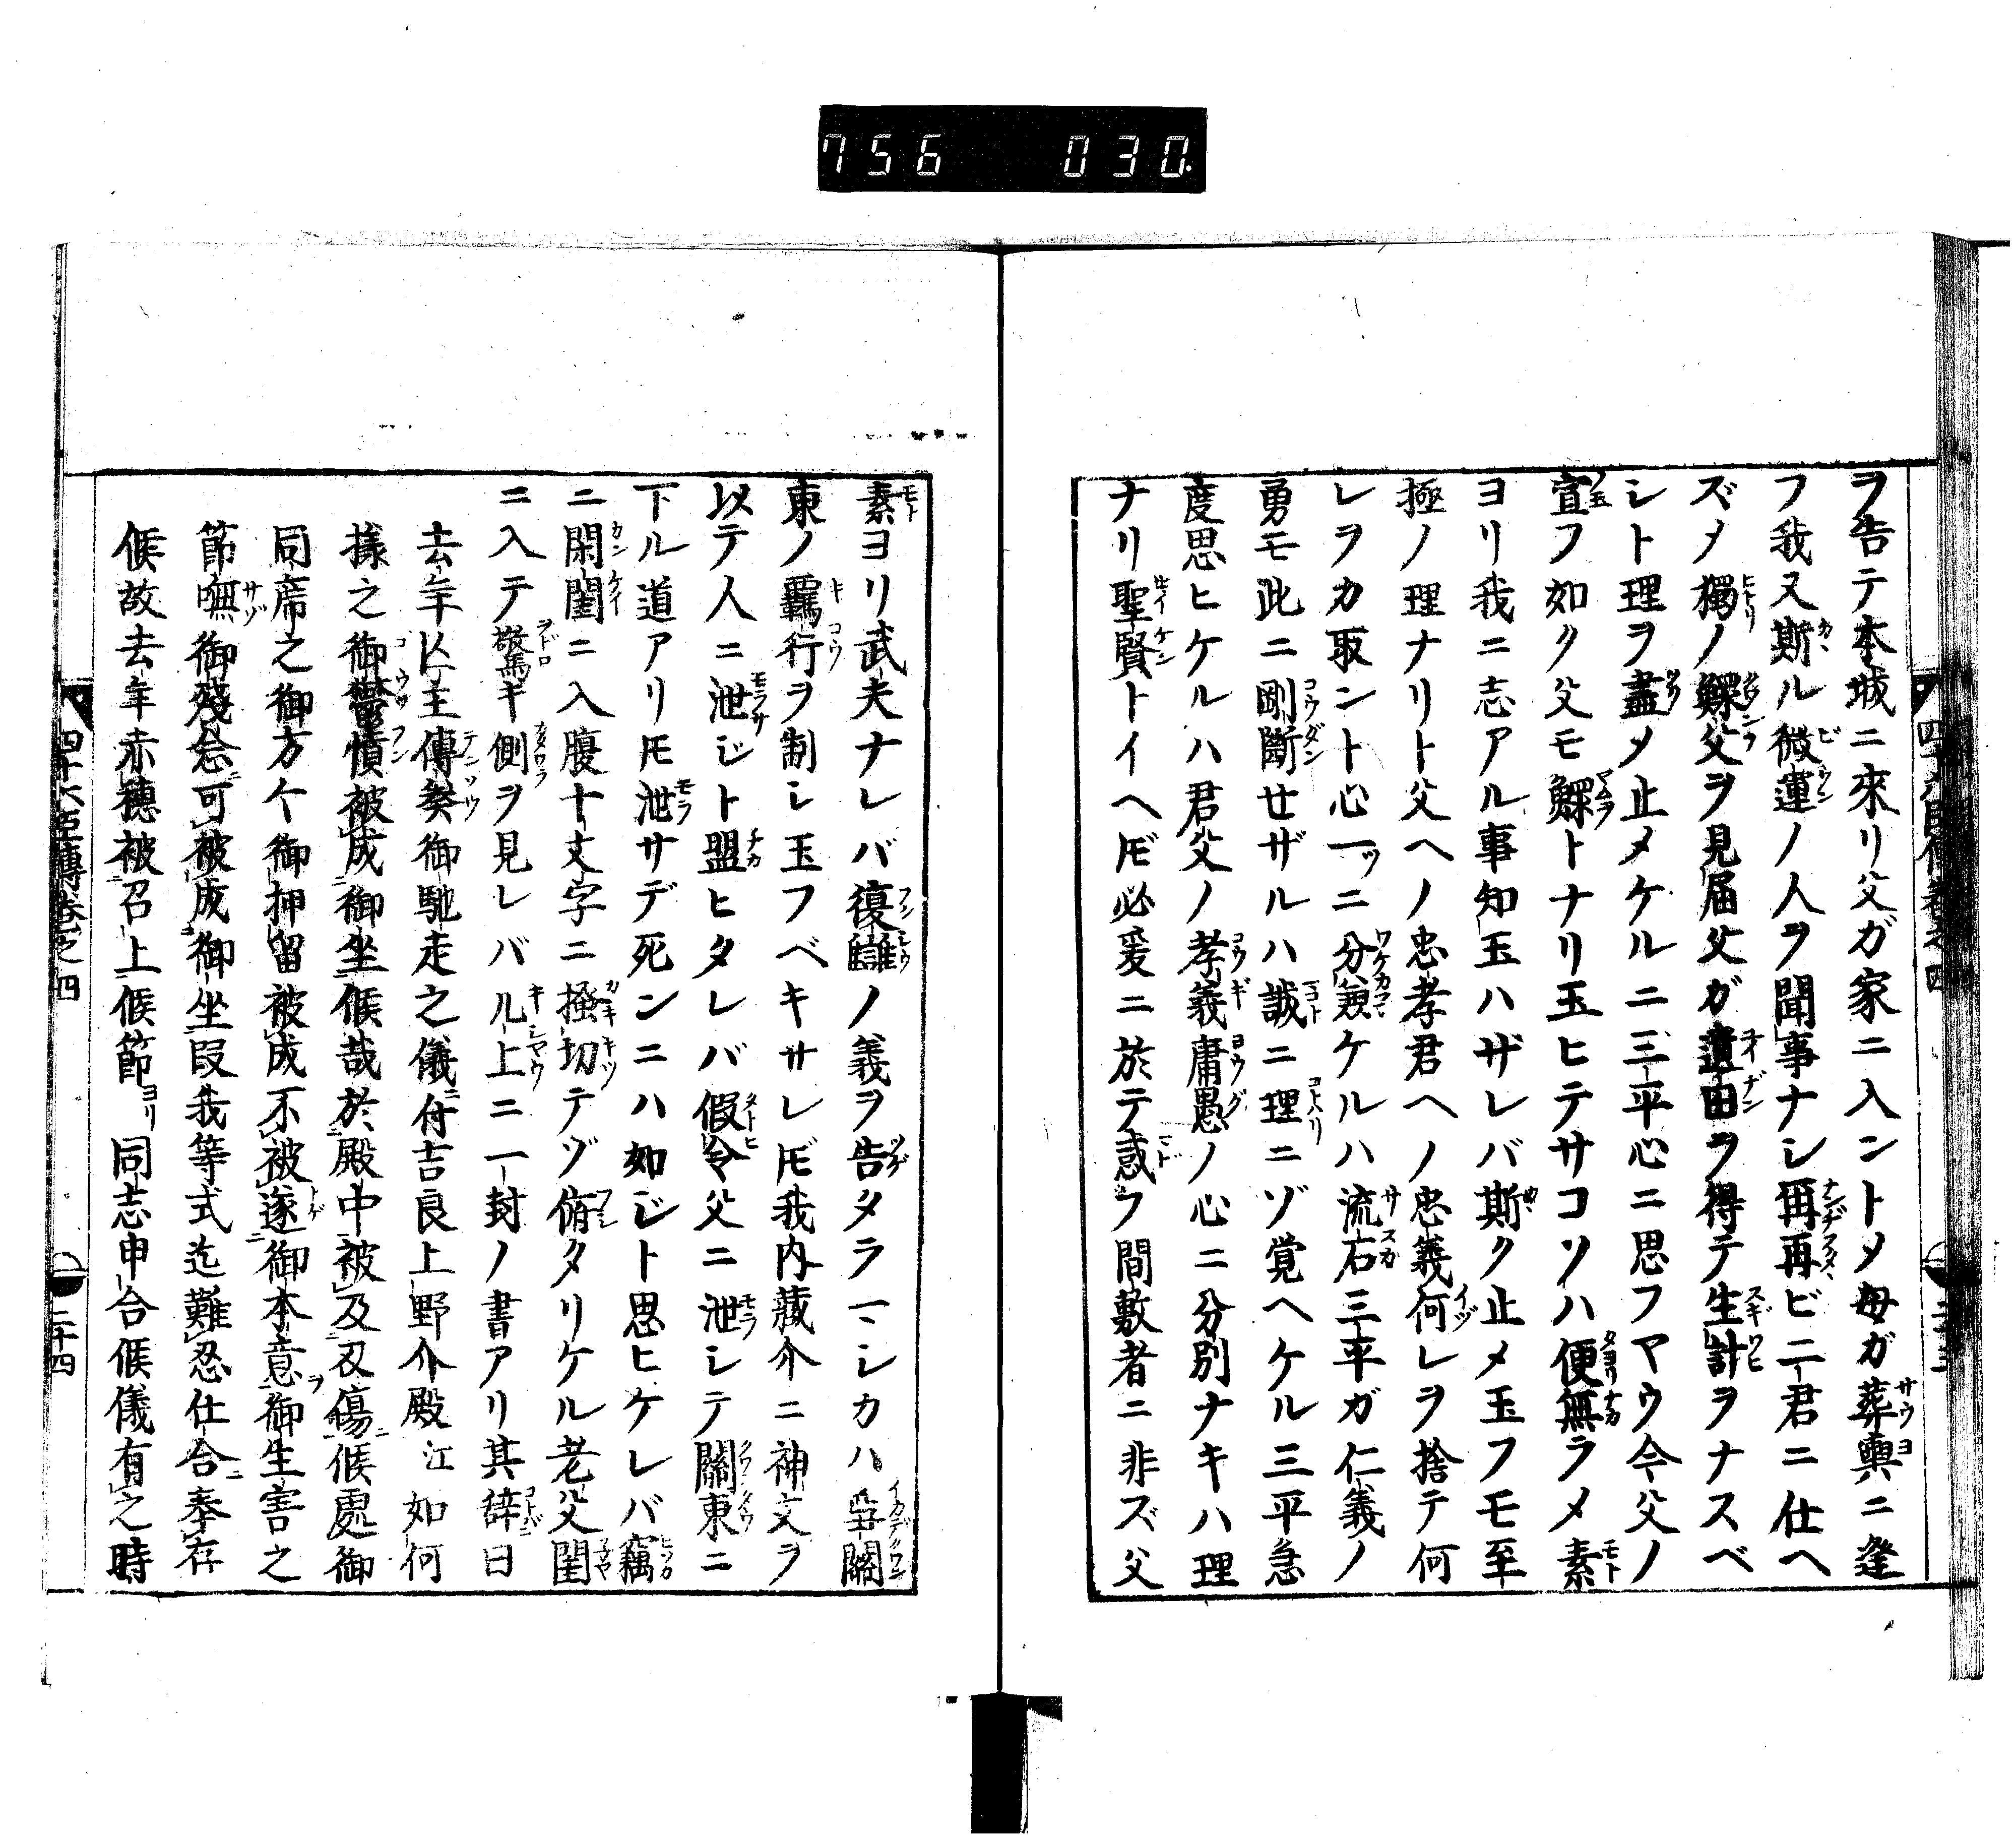 756 030
ヲ告テ本城ニ來リ父ガ家ニ入ントメ母ガ葬輿ニ逢
フ我又斯ル微運ノ人ヲ聞事ナシ再再ビ二君ニ仕ヘ
ズメ獨ノ鰥父ヲ見届父ガ遺田ヲ得テ生計ヲナスベ
シト理ヲ盡メ止メケルニ三平心ニ思フヤウ今父ノ
宣フ如ク父モ鰥トナリ玉ヒテサコソハ便無ラメ素
ヨリ我ニ志アル事知玉ハザレバ斯ク止メ玉フモ至
極ノ理ナリト父ヘノ忠孝君ヘノ忠義何レヲ捨テ何
レヲカ取ント心一ッニ分兼ケルハ流石三平ガ仁義ノ
勇モ此ニ剛斷せザルハ誠ニ理ニゾ覚ヘケル三平急
度思ヒケルハ君父ノ孝義庸愚ノ心ニ分別ナキハ理
ナリ聖賢トイヘ𪜈必爰ニ於テ惑フ間敷者ニ非ズ父
素ヨリ武夫ナレバ復讎ノ義ヲ告タラマシカハ爭關
東ノ覊行ヲ制シ玉フベキサレ𪜈我内藏介ニ神文ヲ
以テ人ニ泄ジト盟ヒタレバ假令父ニ泄シテ關東ニ
下ル道アリ𪜈泄サデ死ンニハ如ジト思ヒケレバ竊
ニ閑閨ニ入腹十丈字ニ掻切テゾ俯タリケル老父閨
ニ入テ驚キ側ヲ見レバ几上ニ一封ノ書アリ其辞曰
去年亡主傳奏御馳走之儀ニ付吉良上野介殿江如何
樣之御鬱憤被成御坐候哉於殿中被及刄傷候處御
同席之御方々御押留被成不被遂御本意ヲ御生害之
節嘸御殘念可被成御坐段我等式迄難忍仕合奉存
候故去年赤穗被召上候節ヨリ同志申合候儀有之時
四十六臣傳卷之四
二十四